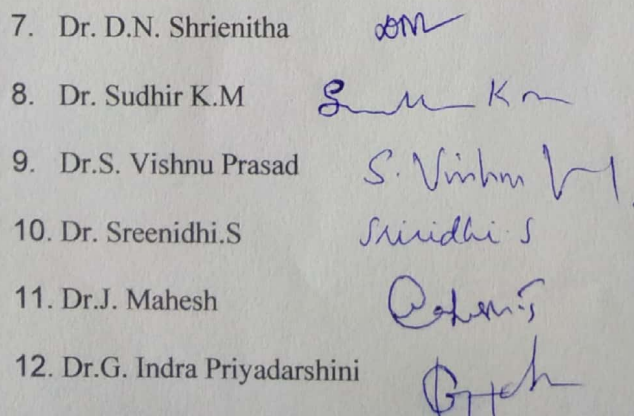 7. Dr. D.N. Shrienitha
8. Dr. Sudhir K.M
9. Dr.S. Vishnu Prasad S. Vishnu
10. Dr. Sreenidhi.S
11. Dr.J. Mahesh
12. Dr.G. Indra Priyadarshini